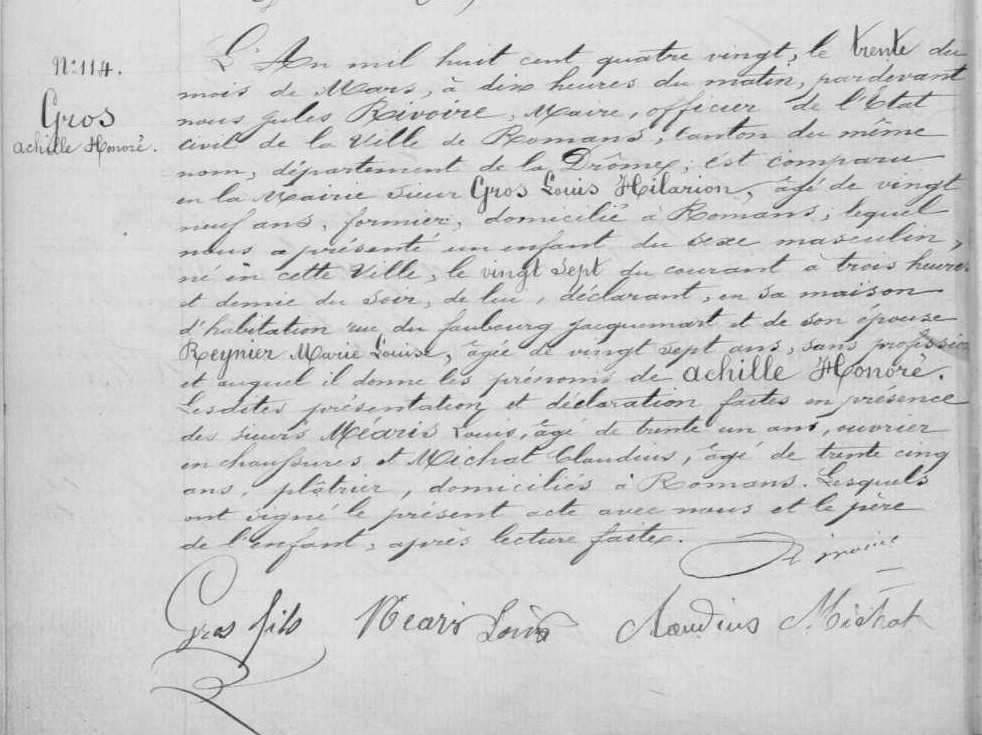 N° 114.
Gros
achille Honoré.
L'An mil huit cent quatre vingt, le trente du
mois de Mars, à dix heures du matin, pardevant
nous Jules Rivoire, Maire, officier de l'Etat
civil de la Ville de Romans, Canton du même
nom, département de la Drôme, est comparu
en la Mairie sieur Gros Louis Hilarion, âgé de vingt
neuf ans, formier, domicilié à Romans, lequel
nous a présenté un enfant du sexe masculin,
né en cette Ville, le vingt sept du courant à trois heures
et demie du soir, de lui, déclarant, en sa maison
d'habitation rue du faubourg jacquemart et de son épouse
Reynier Marie Louise, âgée de vingt sept ans, sans profession
et auquel il donne les prénoms de achille Honoré.
Lesdites présentation et déclaration faites en présence
des sieurs Mearis Louis, âgé de trente un ans, ouvrier
en chaussures et Michat Claudius, âgé de trente cinq
ans, plâtrier, domiciliés à Romans. Lesquels
ont signé le présent acte avec nous et le père
de l'enfant, après lecture faite.
Rivoire
Gros fils Mearis Louis Claudius Michat